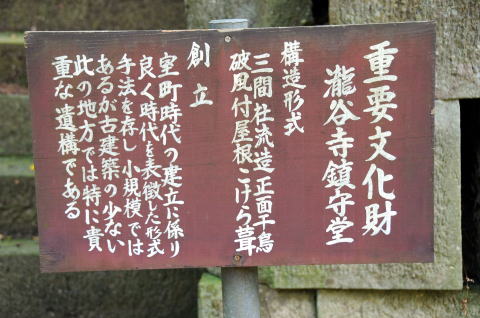 重要文化財
瀧谷寺鎮守堂
構造形式
三間社流造正面千鳥
破風付屋根こけら葺
創立
室町時代の建立に係り
良く時代を表徴した形式
手法を存し小規模では
あるが古建築の少ない
此の地方では特に貴
重な遺構である